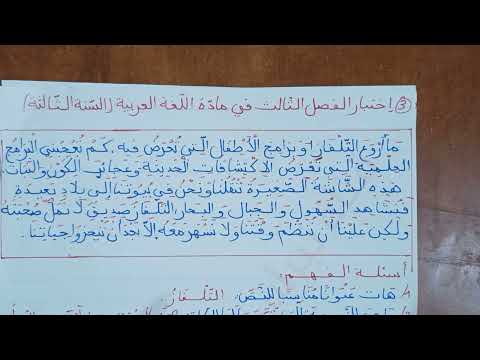 ③ اختبار الفصل الثالث في مادّة اللّغة العربية (السّنة الثّالثة)
مَا أَرْوَعَ التِّلْفَازَ! وَبَرَامِجَ الأَطْفَالِ الَّتِي تُعْرَضُ فِيهِ. كَمْ تُعْجِبُنِي البَرَامِجُ
العِلْمِيَّةُ الَّتِي تَعْرِضُ الاكْتِشَافَاتِ الحَدِيثَةَ وَعَجَائِبَ الكَوْنِ وَالنَّبَاتِ
هَذِهِ الشَّاشَةُ الصَّغِيرَةُ تَنْقُلُنَا وَنَحْنُ فِي بُيُوتِنَا إِلَى بِلَادٍ بَعِيدَةٍ
فَنُشَاهِدُ السُّهُولَ وَالجِبَالَ وَالبِحَارَ. التِّلْفَازُ صَدِيقٌ لَا نَمَلُّ صُحْبَتَهُ
وَلَكِنْ عَلَيْنَا أَنْ نُنَظِّمَ وَقْتَنَا وَلَا نَسْهَرَ مَعَهُ إِلَّا بَعْدَ أَنْ نُنْجِزَ وَاجِبَاتِنَا.
أسئلة الفهم:
1/ هَاتِ عُنْوَانًا مُنَاسِبًا لِلنَّصِّ: التِّلْفَازُ.